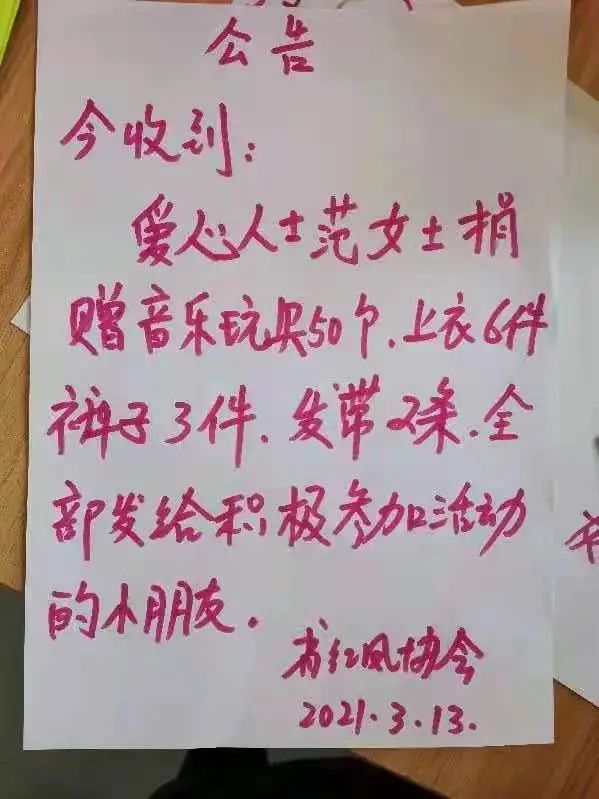 公告
今收到：
爱心人士范女士捐
赠音乐玩具50个、上衣6件
裤子3件、发带2条、全
部发给积极参加活动
的小朋友.
红风协会
2021.3.13.